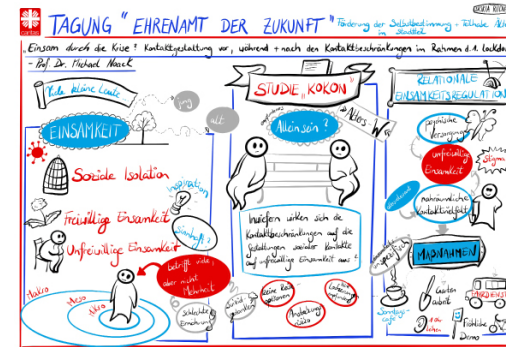 caritas
TAGUNG "EHRENAMT DER ZUKUNFT"
Förderung der Selbstbestimmung + Teilhabe
im Stadtteil
"Einsam durch die Krise? Kontaktgestaltung vor, während + nach den Kontaktbeschränkungen im Rahmen d. 1. Lockdow
- Prof. Dr. Michael Noack
Viele kleine Leute
EINSAMKEIT
jung
alt
Soziale Isolation
Inspiration
Freiwillige Einsamkeit
Sinnhaft?
Unfreiwillige Einsamkeit
betrifft viele,
aber nicht
Mehrheit
Makro
Meso
Schlechte
Ernährung
STUDIE "KOKON"
Alleinsein?
Inwiefern wirken sich die
Kontaktbeschränkungen auf die
Gestaltungen sozialer Kontakte
auf unfreiwillige Einsamkeit aus?
RELATIONALE
EINSAMKEITSREGULATION
psychische
Versorgung
unfreiwillige
Einsamkeit
Stigma
nahräumliche
Kontaktvielfalt
MAßNAHMEN
Sonntags-
café
Garten
arbeit
Fröhliche
Demo